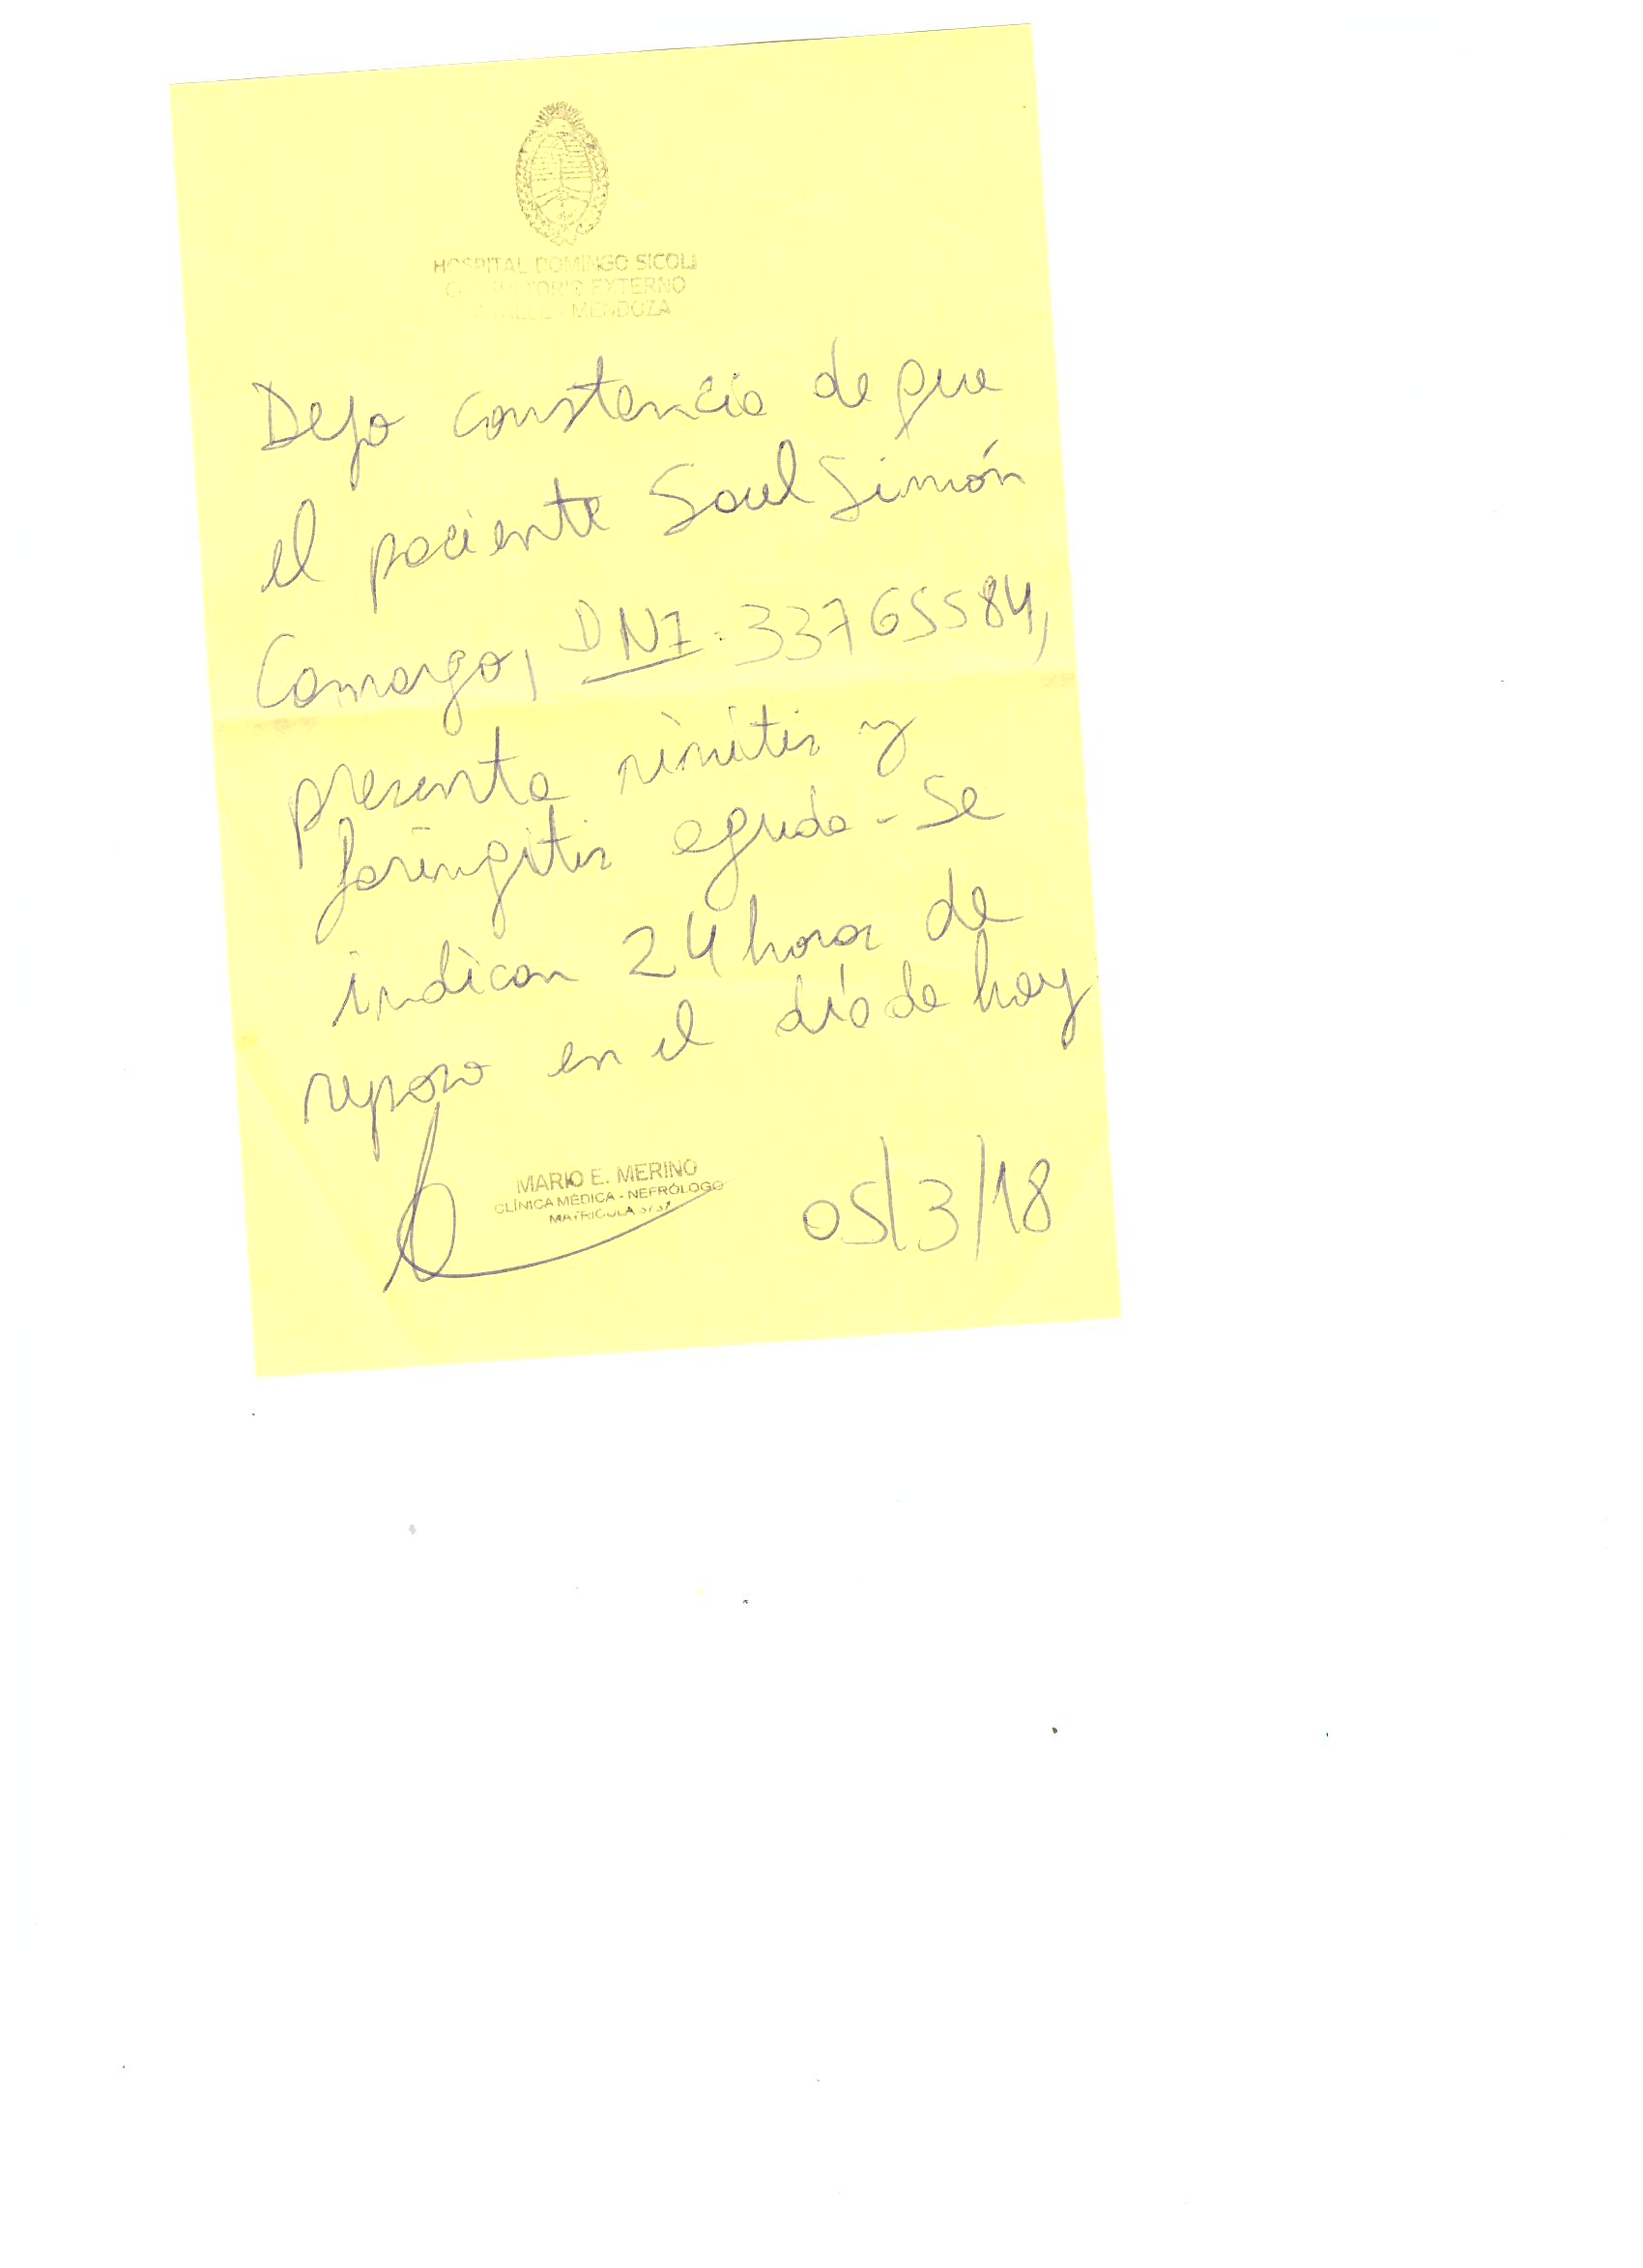 HOSPITAL DOMINGO SICOLI
EXTERNO
MENDOZA
Dejo constancia de que
el paciente Saul Simón
Camargo, DNI: 33765584,
presenta rinitis y
faringitis aguda - Se
indican 24 horas de
reposo en el día de hoy
MARIO E. MERINO
CLÍNICA MÉDICA - NEFRÓLOGO
MATRICULA
05/3/18